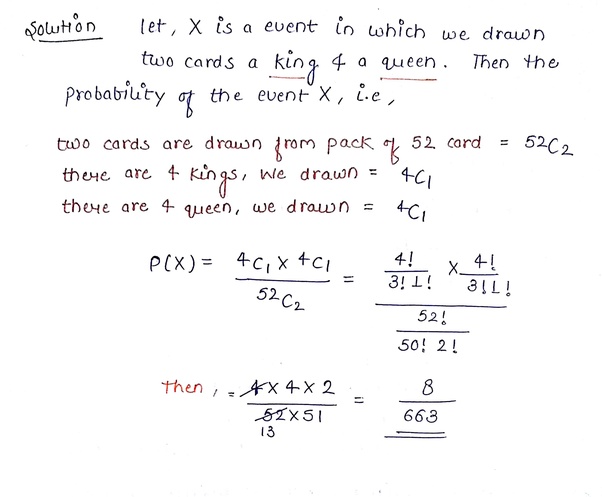 Solution let, X is a event in which we drawn
two cards a king & a queen. Then the
probability of the event X, i.e,
two cards are drawn from pack of 52 card = 52C2
there are 4 kings, we drawn = 4C1
there are 4 queen, we drawn = 4C1
P(X) = 4C1 X 4C1 / 52C2 = 4! / 3! 1! X 4! / 3! 1! / 52! / 50! 2!
Then, = 4 X 4 X 2 / 52 X 51 = 8 / 663
13